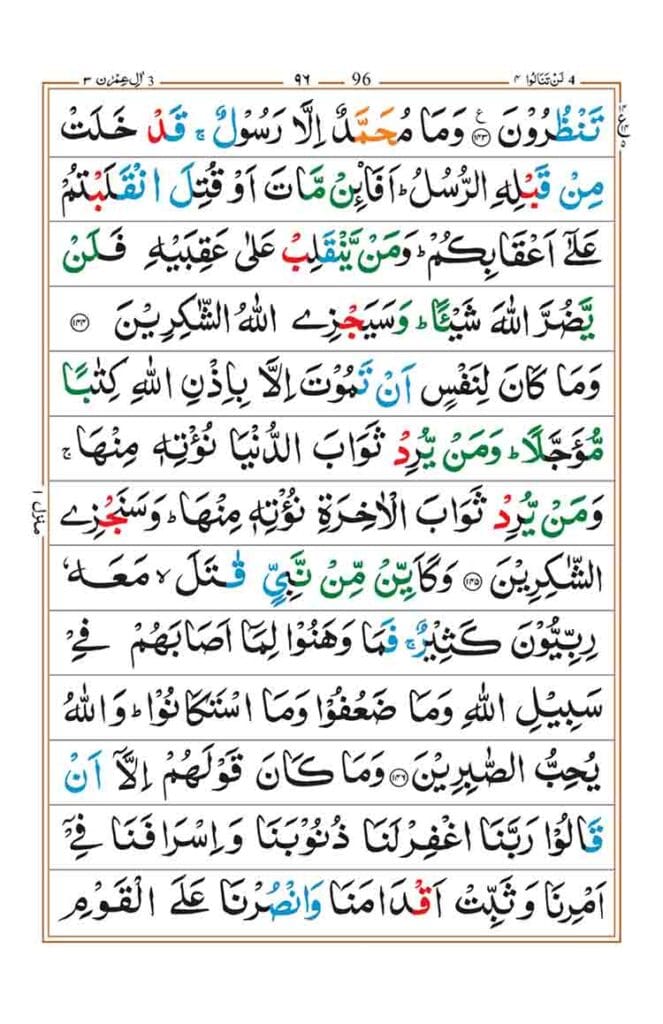 اٰل عِمْرٰن ٣ 3 ٩٦ 96 لَنْ تَنَالُوا ٤ 4
تَنْظُرُوْنَ ﴿١٤٣﴾ ع وَمَا مُحَمَّدٌ اِلَّا رَسُوْلٌ ۚ قَدْ خَلَتْ
مِنْ قَبْلِهِ الرُّسُلُ ؕ اَفَا۟ئِنْ مَّاتَ اَوْ قُتِلَ انْقَلَبْتُمْ
عَلٰٓى اَعْقَابِكُمْ ؕ وَمَنْ يَّنْقَلِبْ عَلٰى عَقِبَيْهِ فَلَنْ
يَّضُرَّ اللّٰهَ شَيْـًٔا ؕ وَسَيَجْزِى اللّٰهُ الشّٰكِرِيْنَ ﴿١٤٤﴾
وَمَا كَانَ لِنَفْسٍ اَنْ تَمُوْتَ اِلَّا بِاِذْنِ اللّٰهِ كِتٰبًا
مُّؤَجَّلًا ؕ وَمَنْ يُّرِدْ ثَوَابَ الدُّنْيَا نُؤْتِهٖ مِنْهَا ۚ
وَمَنْ يُّرِدْ ثَوَابَ الْاٰخِرَةِ نُؤْتِهٖ مِنْهَا ؕ وَسَنَجْزِى
الشّٰكِرِيْنَ ﴿١٤٥﴾ وَكَاَيِّنْ مِّنْ نَّبِىٍّ قٰتَلَ ۙ مَعَهٗ
رِبِّيُّوْنَ كَثِيْرٌ ۚ فَمَا وَهَنُوْا لِمَاۤ اَصَابَهُمْ فِىْ
سَبِيْلِ اللّٰهِ وَمَا ضَعُفُوْا وَمَا اسْتَكَانُوْا ؕ وَاللّٰهُ
يُحِبُّ الصّٰبِرِيْنَ ﴿١٤٦﴾ وَمَا كَانَ قَوْلَهُمْ اِلَّاۤ اَنْ
قَالُوْا رَبَّنَا اغْفِرْ لَنَا ذُنُوْبَنَا وَاِسْرَافَنَا فِىْۤ
اَمْرِنَا وَثَبِّتْ اَقْدَامَنَا وَانْصُرْنَا عَلَى الْقَوْمِ
منزل ١